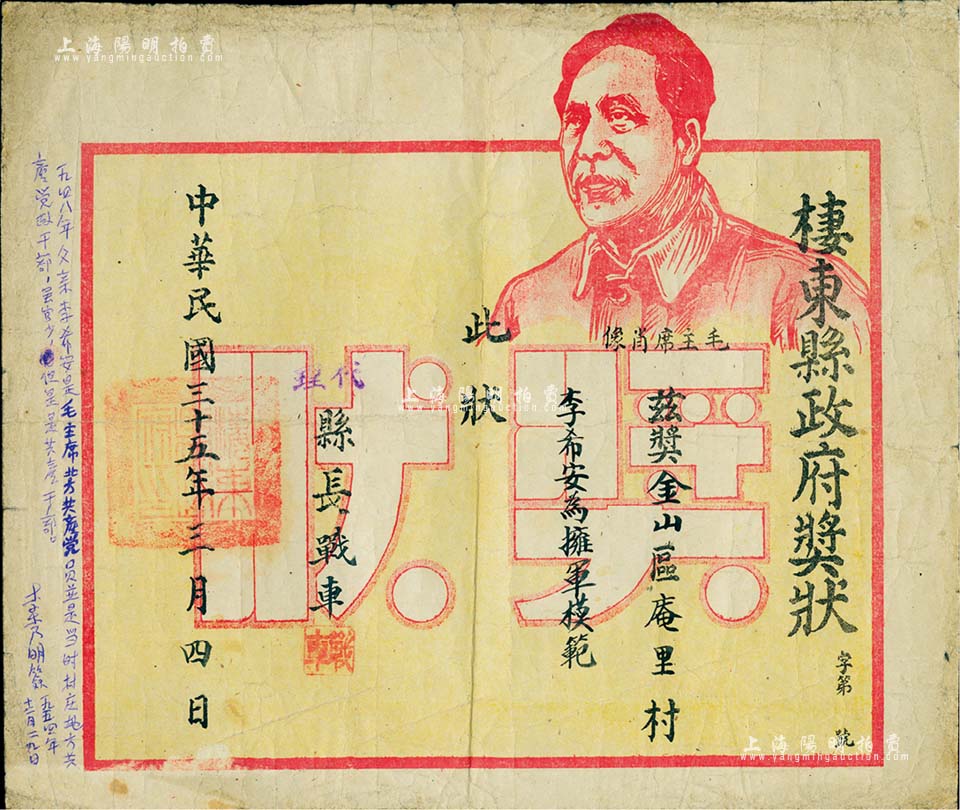 棲東縣政府獎狀
字第 號
毛主席肖像
茲獎金山區庵里村
李希安為擁軍模範
此狀
代理
縣長戰車
戰車
中華民國三十五年三月四日
獎狀
一九四八年父亲李希安是毛主席 共产党员並是当时村庄地方共
產党政干部，但是是共產干部。
一九五四年
十二月二九日
上海陽明拍賣
www.yangmingauction.com
上海陽明拍賣
www.yangmingauction.com
上海陽明拍賣
www.yangmingauction.com